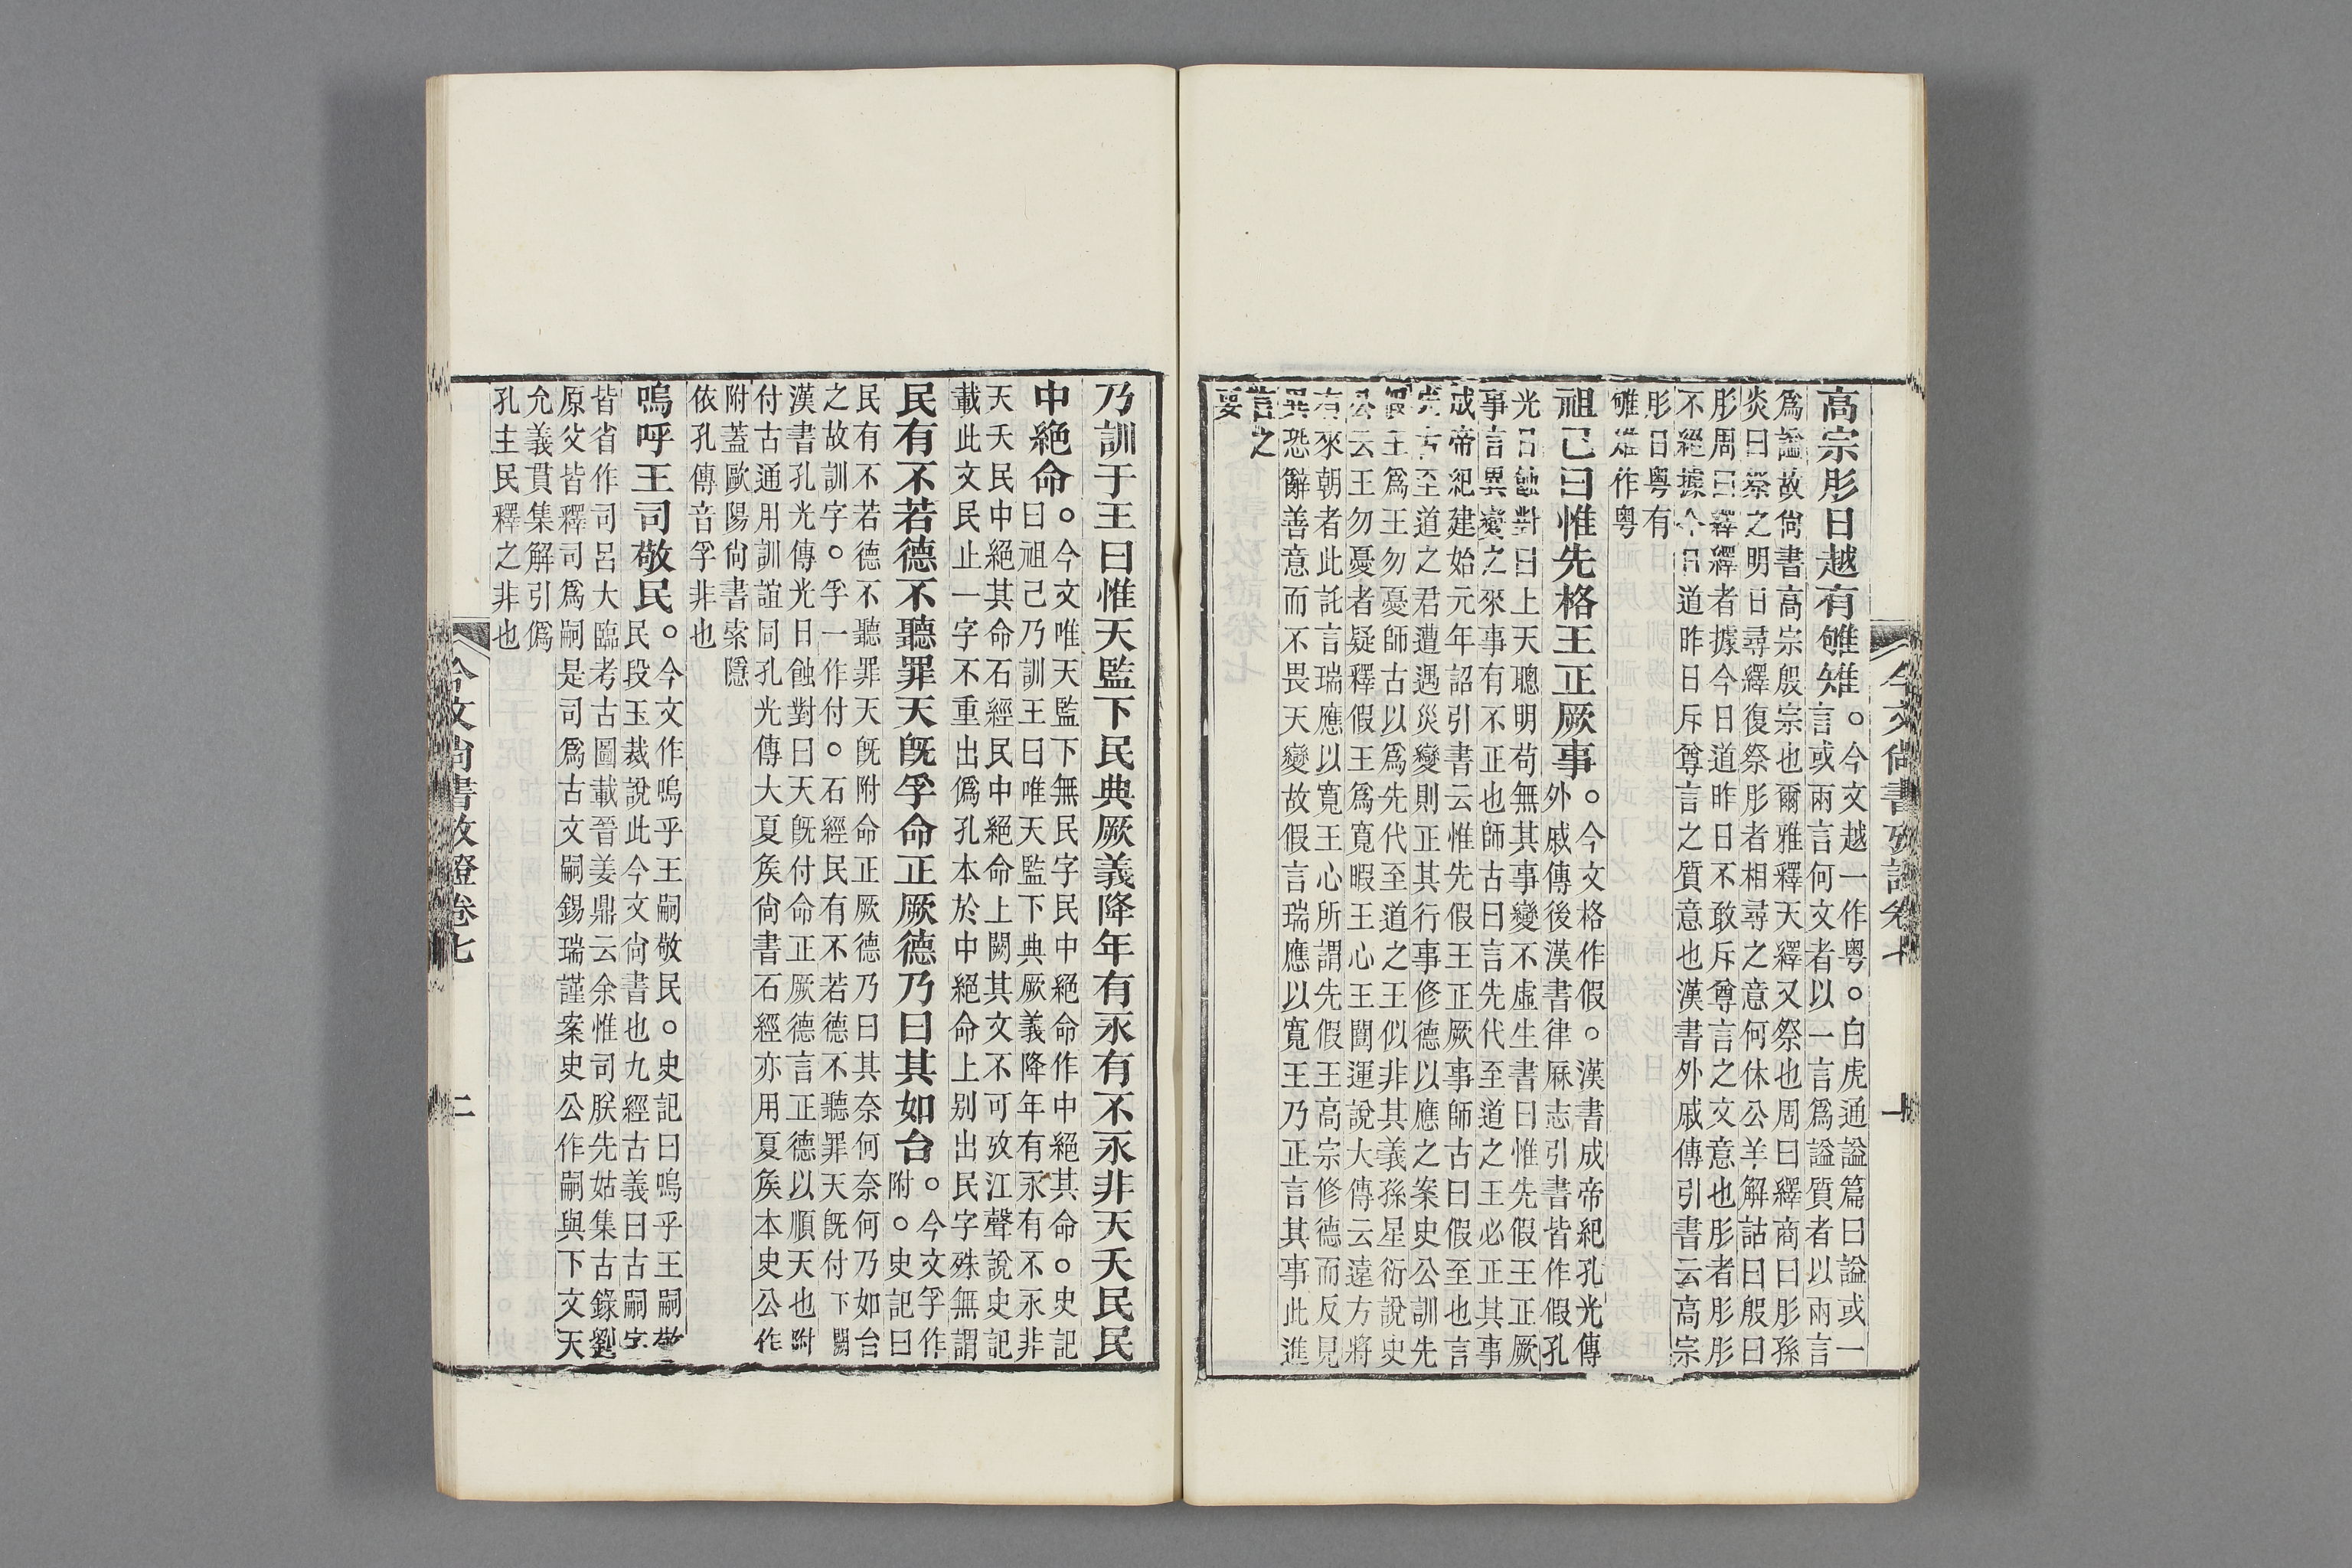 今文尚書攷證卷七 一
高宗肜日越有雊雉。今文越一作粤。白虎通諡篇曰諡或一
言或兩言何文者以一言爲諡質者以兩言
爲諡故尚書高宗殷宗也爾雅釋天繹又祭也周曰繹商曰肜孫
炎曰祭之明日尋繹復祭肜者相尋之意何休公羊解詁曰殷曰
肜周曰繹繹者據今日道昨日不敢斥尊言之文意也肜者肜肜
不絕據今日道昨日斥尊言之質意也漢書外戚傳引書云高宗
肜日粤有
雊雉作粤
祖己曰惟先格王正厥事。今文格作假。漢書成帝紀孔光傳
外戚傳後漢書律厤志引書皆作假孔
光日蝕對曰上天聰明苟無其事變不虛生書曰惟先假王正厥
事言異變之來事有不正也師古曰言先代至道之王必正其事
成帝紀建始元年詔引書云惟先假王正厥事師古曰假至也言
先古至道之君遭遇災變則正其行事修德以應之案史公訓先
假王爲王勿憂師古以爲先代至道之王似非其義孫星衍說史
公云王勿憂者疑釋假王爲寬暇王心王闓運說大傳云遠方將
有來朝者此託言瑞應以寬王心所謂先假王高宗修德而反見
異恐辭善意而不畏天變故假言瑞應以寬王乃正言其事此進
言之
要
乃訓于王曰惟天監下民典厥義降年有永有不永非天夭民民
中絕命。今文唯天監下無民字民中絕命作中絕其命。史記
曰祖己乃訓王曰唯天監下典厥義降年有永有不永非
天夭民中絕其命石經民中絕命上闕其文不可攷江聲說史記
載此文民止一字不重出僞孔本於中絕命上别出民字殊無謂
民有不若德不聽罪天旣孚命正厥德乃曰其如台。今文孚作
附。史記曰
民有不若德不聽罪天旣附命正厥德乃曰其奈何奈何乃如台
之故訓字。孚一作付。石經民有不若德不聽罪天旣付下闕
漢書孔光傳光日蝕對曰天旣付命正厥德言正德以順天也附
付古通用訓誼同孔光傳大夏矦尚書石經亦用夏矦本史公作
附蓋歐陽尚書索隱
依孔傳音孚非也
嗚呼王司敬民。今文作嗚乎王嗣敬民。史記曰嗚乎王嗣敬
民段玉裁說此今文尚書也九經古義曰古嗣字
皆省作司呂大臨考古圖載晉姜鼎云余惟司朕先姑集古錄劉
原父皆釋司爲嗣是司爲古文嗣錫瑞謹案史公作嗣與下文天
允義貫集解引僞
孔主民釋之非也
今文尚書攷證卷七 二